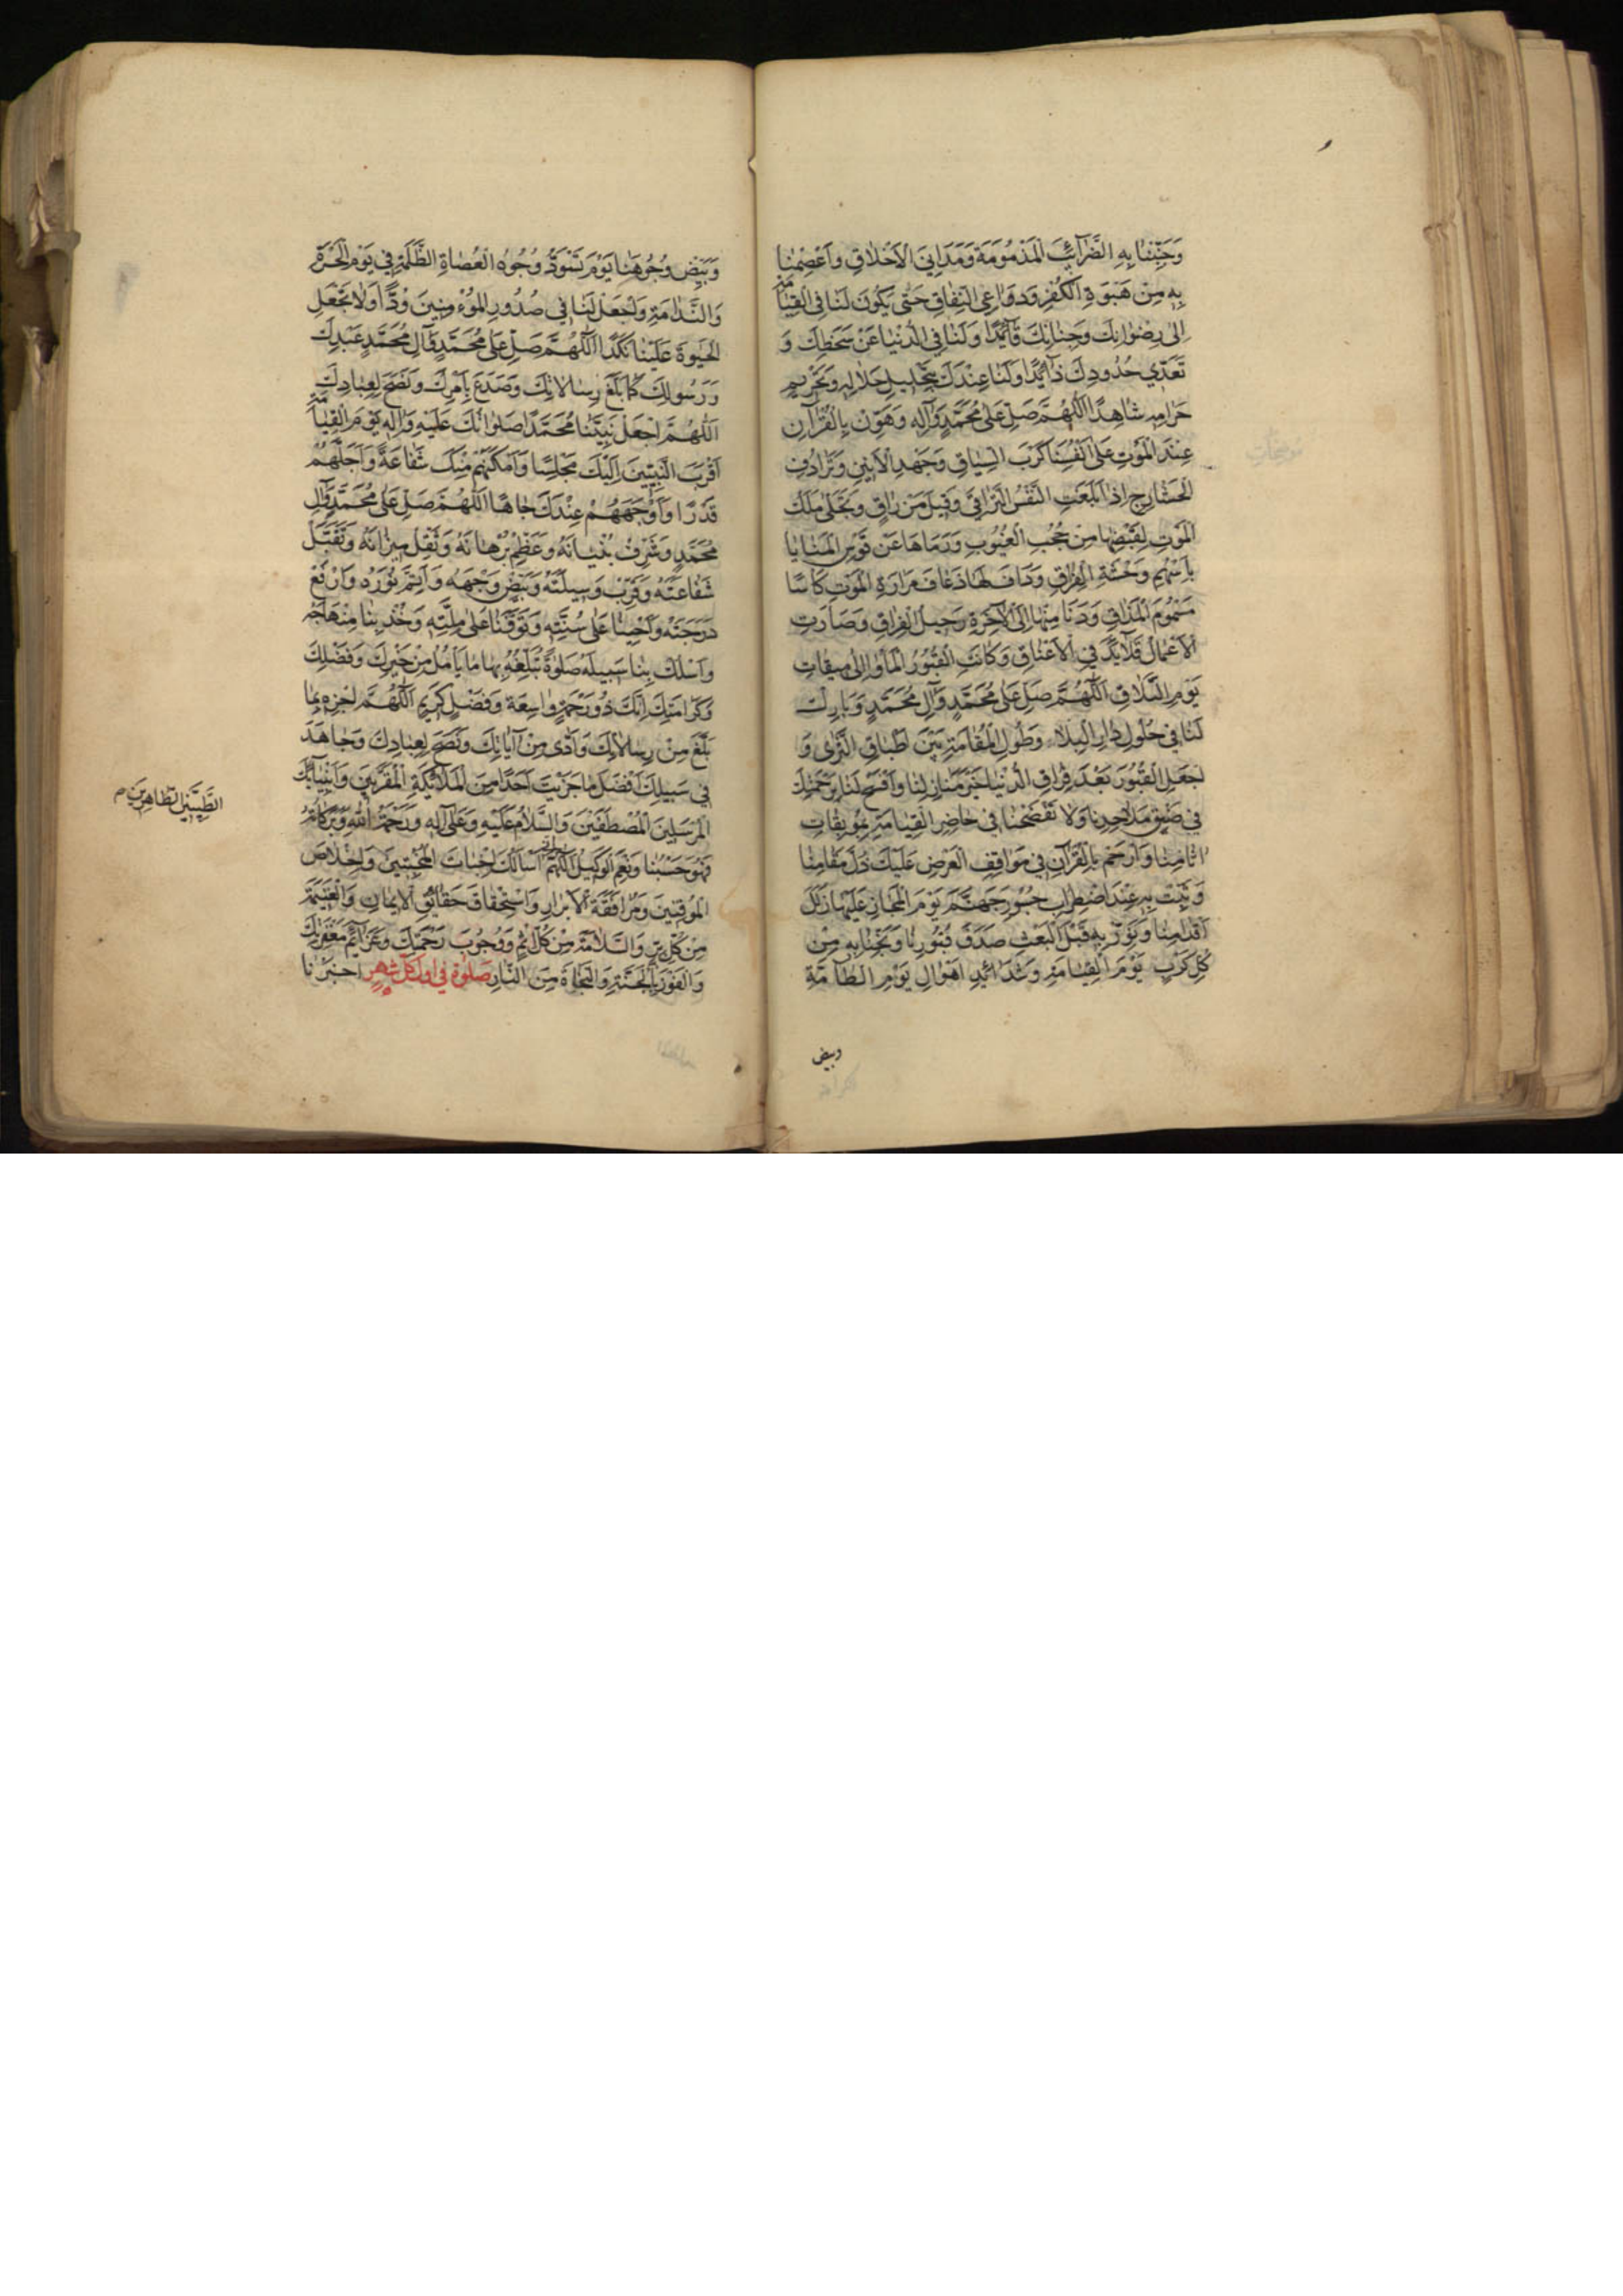 وَجَنِّبْنَا بِهِ الضَّرَآئِبَ الْمَذْمُومَةَ وَمَدَانِىَ الْاَخْلَاقِ وَاعْصِمْنَا
بِهِ مِنْ هَبْوَةِ الْكُفْرِ وَدَوَاعِى النِّفَاقِ حَتّٰى يَكُونَ لَنَا فِى الْقِيٰمَةِ
اِلٰى رِضْوَانِكَ وَجِنَانِكَ قَآئِدًا وَلَنَا فِى الدُّنْيَا عَنْ سَخَطِكَ وَ
تَعَدِّى حُدُودِكَ ذَآئِدًا وَلَنَا عِنْدَكَ بِتَحْلِيلِ حَلَالِهِ وَتَحْرِيمِ
حَرَامِهِ شَاهِدًا اَللّٰهُمَّ صَلِّ عَلٰى مُحَمَّدٍ وَآلِهِ وَهَوِّنْ بِالْقُرْآنِ
عِنْدَ الْمَوْتِ عَلٰى اَنْفُسِنَا كَرْبَ السِّيَاقِ وَجَهْدَ الْاَنِينِ وَتَرَادُفِ
الْحَشَارِجِ اِذَا بَلَغَتِ النَّفْسُ التَّرَاقِىَ وَقِيلَ مَنْ رَاقٍ وَتَجَلّٰى مَلَكُ
الْمَوْتِ لِقَبْضِهَا مِنْ حُجُبِ الْغُيُوبِ وَرَمَاهَا عَنْ قَوْسِ الْمَنَايَا
بِاَسْهُمِ وَحْشَةِ الْفِرَاقِ وَدَافَ لَهَا ذُعَافَ مَرَارَةِ الْمَوْتِ كَاْسًا
مَسْمُومَ الْمَذَاقِ وَدَنَا مِنْهَا اِلَى الْآخِرَةِ رَحِيلُ الْفِرَاقِ وَصَارَتِ
الْاَعْمَالُ قَلَآئِدَ فِى الْاَعْنَاقِ وَكَانَتِ الْقُبُورُ الْمَاْوٰا اِلٰى مِيقَاتِ
يَوْمِ التَّلَاقِ اَللّٰهُمَّ صَلِّ عَلٰى مُحَمَّدٍ وَآلِ مُحَمَّدٍ وَبَارِكْ
لَنَا فِى حُلُولِ دَارِ الْبِلَاءِ وَطُولِ الْمُقَامَةِ بَيْنَ اَطْبَاقِ الثَّرٰى وَ
اجْعَلِ الْقُبُورَ بَعْدَ فِرَاقِ الدُّنْيَا خَيْرَ مَنَازِلِنَا وَافْسَحْ لَنَا بِرَحْمَتِكَ
فِى ضِيقِ مَلَاحِدِنَا وَلَا تَفْضَحْنَا فِى حَاضِرِ الْقِيَامَةِ بِمُوبِقَاتِ
اٰثَامِنَا وَارْحَمْ بِالْقُرْآنِ فِى مَوَاقِفِ الْعَرْضِ عَلَيْكَ ذُلَّ مَقَامِنَا
وَثَبِّتْ بِهِ عِنْدَ اضْطِرَابِ جُسُورِ جَهَنَّمَ يَوْمَ الْمَجَازِ عَلَيْهَا زَلَلَ
اَقْدَامِنَا وَنَوِّرْ بِهِ قَبْلَ الْبَعْثِ صَدَفَ قُبُورِنَا وَنَجِّنَا بِهِ مِنْ
كُلِّ كَرْبٍ يَوْمَ الْقِيَامَةِ وَشَدَائِدِ اَهْوَالِ يَوْمِ الطَّآمَّةِ
وبيض
وَبَيِّضْ وُجُوهَنَا يَوْمَ تَسْوَدُّ وُجُوهُ الْعُصَاةِ الظَّلَمَةِ فِى يَوْمِ الْحَسْرَةِ
وَالنَّدَامَةِ وَاجْعَلْ لَنَا فِى صُدُورِ الْمُؤْمِنِينَ وُدًّا وَلَا تَجْعَلِ
الْحَيٰوةَ عَلَيْنَا نَكَدًا اَللّٰهُمَّ صَلِّ عَلٰى مُحَمَّدٍ وَآلِ مُحَمَّدٍ عَبْدِكَ
وَرَسُولِكَ كَمَا بَلَّغَ رِسَالَاتِكَ وَصَدَعَ بِاَمْرِكَ وَنَصَحَ لِعِبَادِكَ
اَللّٰهُمَّ اجْعَلْ نَبِيَّنَا مُحَمَّدًا صَلَوَاتُكَ عَلَيْهِ وَآلِهِ يَوْمَ الْقِيٰمَةِ
اَقْرَبَ النَّبِيِّينَ اِلَيْكَ مَجْلِسًا وَاَمْكَنَهُمْ مِنْكَ شَفَاعَةً وَاَجَلَّهُمْ
قَدْرًا وَاَوْجَهَهُمْ عِنْدَكَ جَاهًا اَللّٰهُمَّ صَلِّ عَلٰى مُحَمَّدٍ وَآلِ
مُحَمَّدٍ وَشَرِّفْ بُنْيَانَهُ وَعَظِّمْ بُرْهَانَهُ وَثَقِّلْ مِيزَانَهُ وَتَقَبَّلْ
شَفَاعَتَهُ وَقَرِّبْ وَسِيلَتَهُ وَبَيِّضْ وَجْهَهُ وَاَتِمَّ نُورَهُ وَارْفَعْ
دَرَجَتَهُ وَاَحْيِنَا عَلٰى سُنَّتِهِ وَتَوَفَّنَا عَلٰى مِلَّتِهِ وَخُذْ بِنَا مِنْهَاجَهُ
وَاسْلُكْ بِنَا سَبِيلَهُ صَلٰوةً تُبَلِّغُهُ بِهَا مَا يَاْمُلُ مِنْ خَيْرِكَ وَفَضْلِكَ
وَكَرَامَتِكَ اِنَّكَ ذُو رَحْمَةٍ وَاسِعَةٍ وَفَضْلٍ كَرِيمٍ اَللّٰهُمَّ اجْزِهِ بِمَا
بَلَّغَ مِنْ رِسَالَاتِكَ وَاَدّٰى مِنْ آيَاتِكَ وَنَصَحَ لِعِبَادِكَ وَجَاهَدَ
فِى سَبِيلِكَ اَفْضَلَ مَا جَزَيْتَ اَحَدًا مِنَ الْمَلَآئِكَةِ الْمُقَرَّبِينَ وَاَنْبِيَآئِكَ
الْمُرْسَلِينَ الْمُصْطَفَيْنَ وَالسَّلَامُ عَلَيْهِ وَعَلٰى آلِهِ وَرَحْمَةُ اللّٰهِ وَبَرَكَاتُهُ
الطَّيِّبِينَ الطَّاهِرِينَ م
فَهُوَ حَسْبُنَا وَنِعْمَ الْوَكِيلُ اَللّٰهُمَّ اِنِّى اَسْاَلُكَ اِخْبَاتَ الْمُخْبِتِينَ وَاِخْلَاصَ
الْمُوقِنِينَ وَمُرَافَقَةَ الْاَبْرَارِ وَاسْتِحْقَاقَ حَقَآئِقِ الْاِيمَانِ وَالْغَنِيمَةَ
مِنْ كُلِّ بِرٍّ وَالسَّلَامَةَ مِنْ كُلِّ اِثْمٍ وَوُجُوبَ رَحْمَتِكَ وَعَزَآئِمَ مَغْفِرَتِكَ
وَالْفَوْزَ بِالْجَنَّةِ وَالنَّجَاةَ مِنَ النَّارِ صَلٰوة فِى اول كل شهر اخبرنا